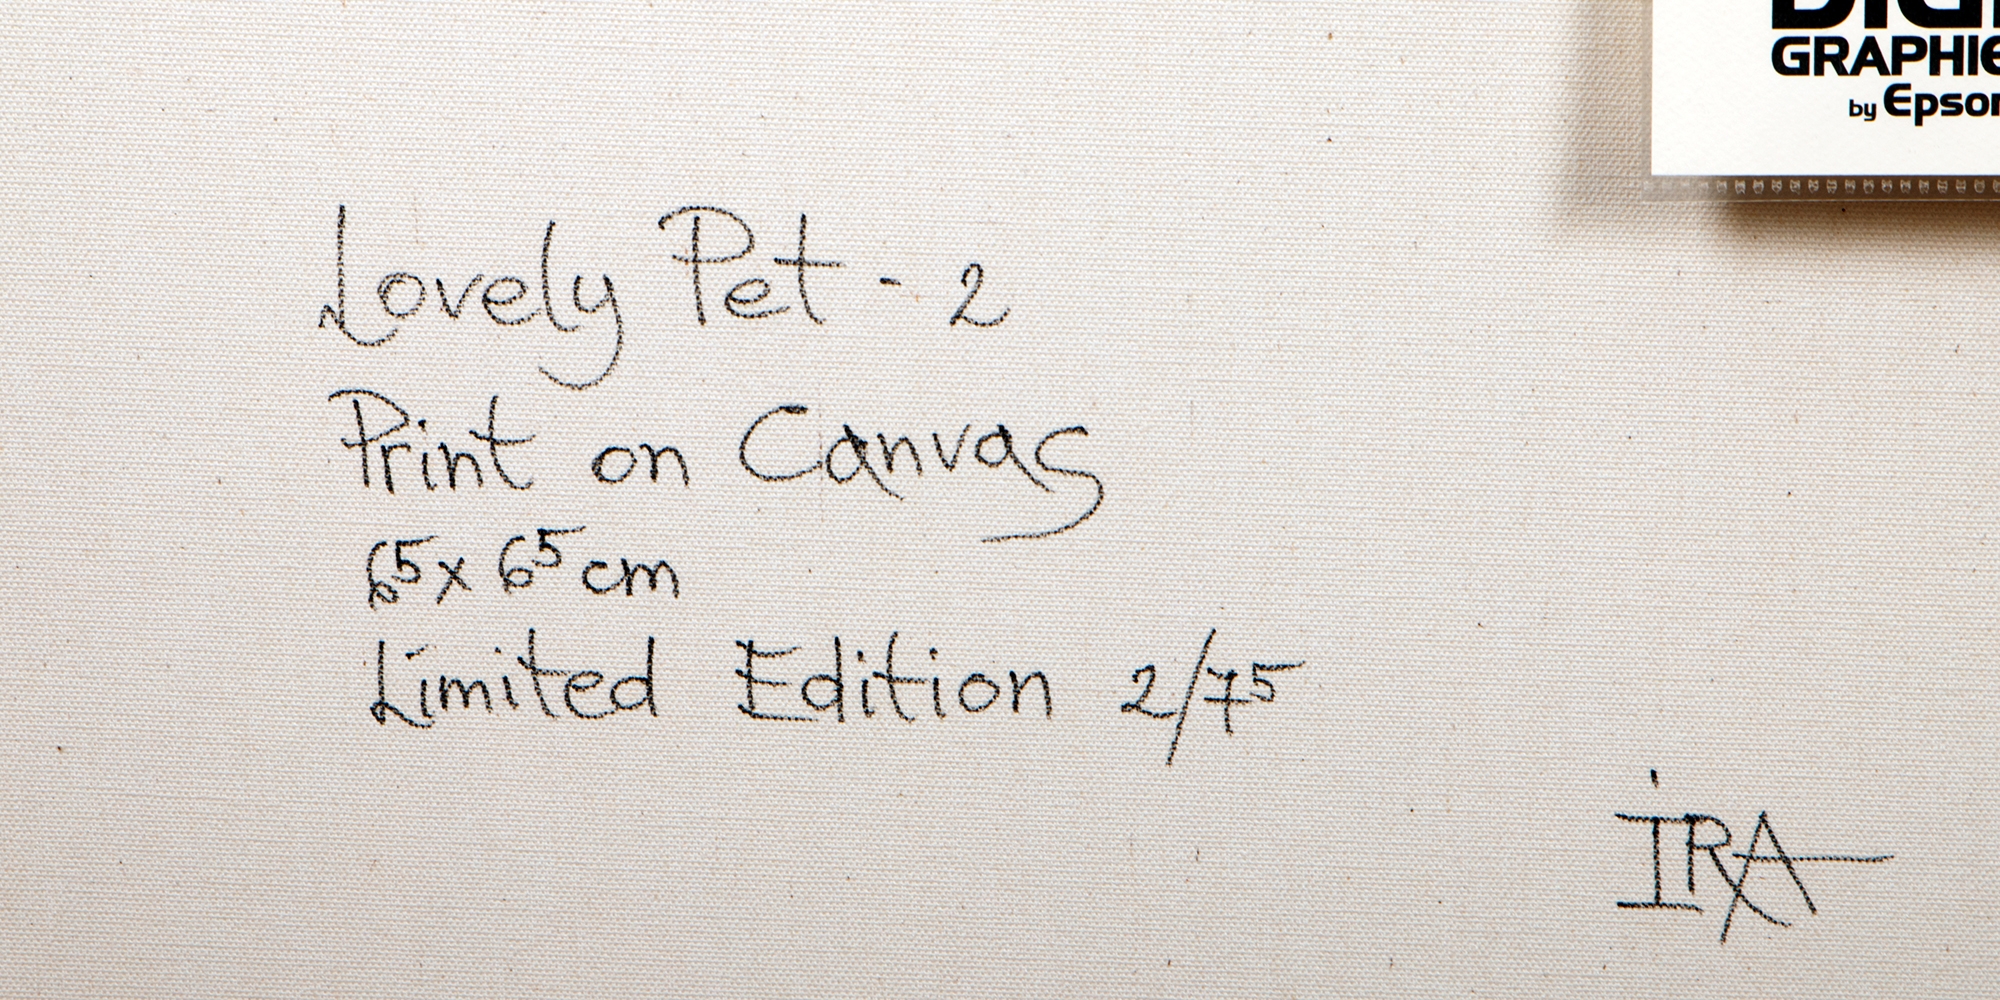 DIGI
GRAPHIE
by Epson
Lovely Pet - 2
Print on Canvas
65 x 65 cm
Limited Edition 2/75
IRA